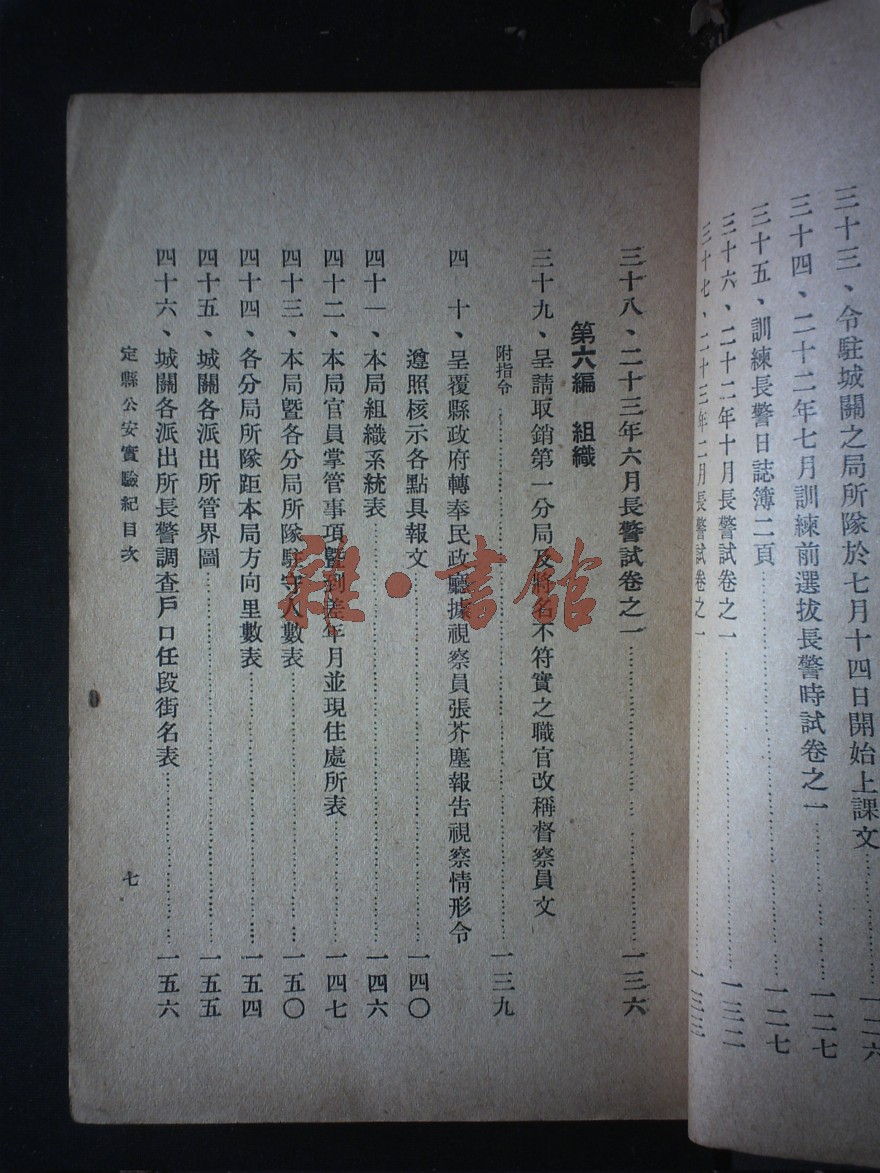 三十三、令駐城關之局所隊於七月十四日開始上課文……一二六
三十四、二十二年七月訓練前選拔長警時試卷之一……一二七
三十五、訓練長警日誌簿二頁……一二七
三十六、二十二年十月長警試卷之一……一三二
三十七、二十三年二月長警試卷之一……一三三
三十八、二十三年六月長警試卷之一……一三六
第六編 組織
三十九、呈請取銷第一分局及將名不符實之職官改稱督察員文
附指令……一三九
四 十、呈覆縣政府轉奉民政廳據視察員張芥塵報告視察情形令
遵照核示各點具報文……一四〇
四十一、本局組織系統表……一四六
四十二、本局官員掌管事項暨到差年月並現住處所表……一四七
四十三、本局暨各分局所隊駐守人數表……一五〇
四十四、各分局所隊距本局方向里數表……一五四
四十五、城關各派出所管界圖……一五五
四十六、城關各派出所長警調查戶口任段街名表……一五六
定縣公安實驗紀目次
七
雜·書館